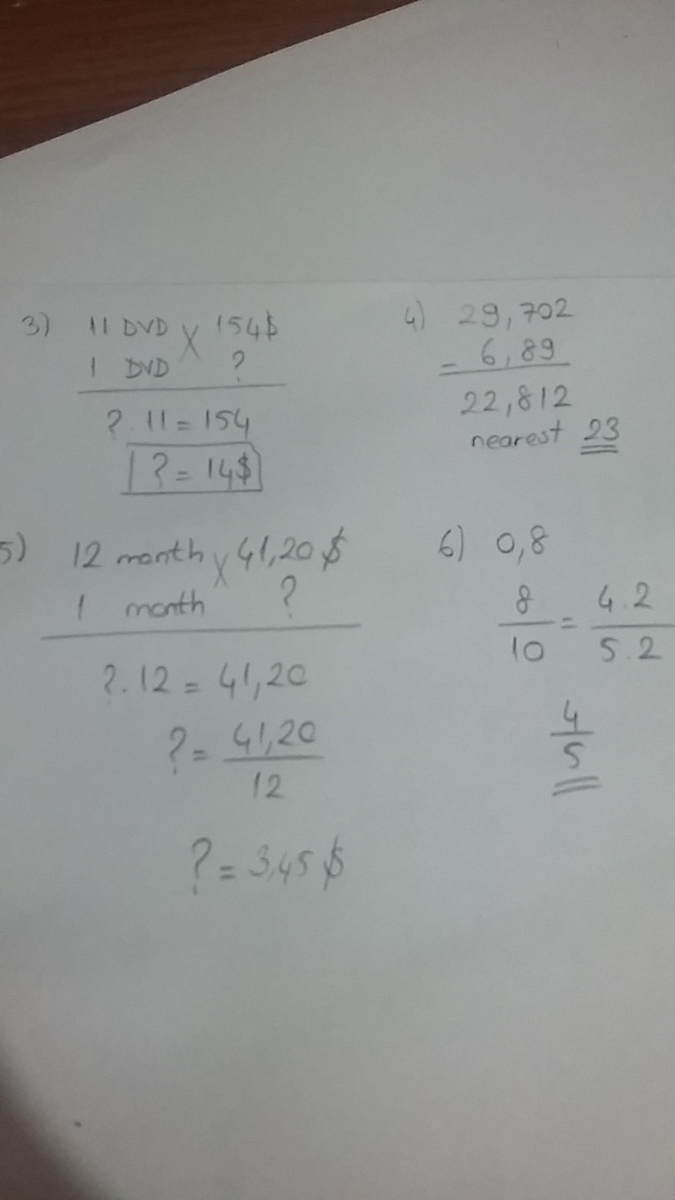 3) 11 DVD X 154$
1 DVD ?
? . 11 = 154
? = 14$
4) 29,702
- 6,89
22,812
nearest 23
5) 12 month X 41,20 $
1 month ?
?. 12 = 41,20
? = 41,20
12
? = 3,45 $
6) 0,8
8 = 4.2
10 5.2
4
5